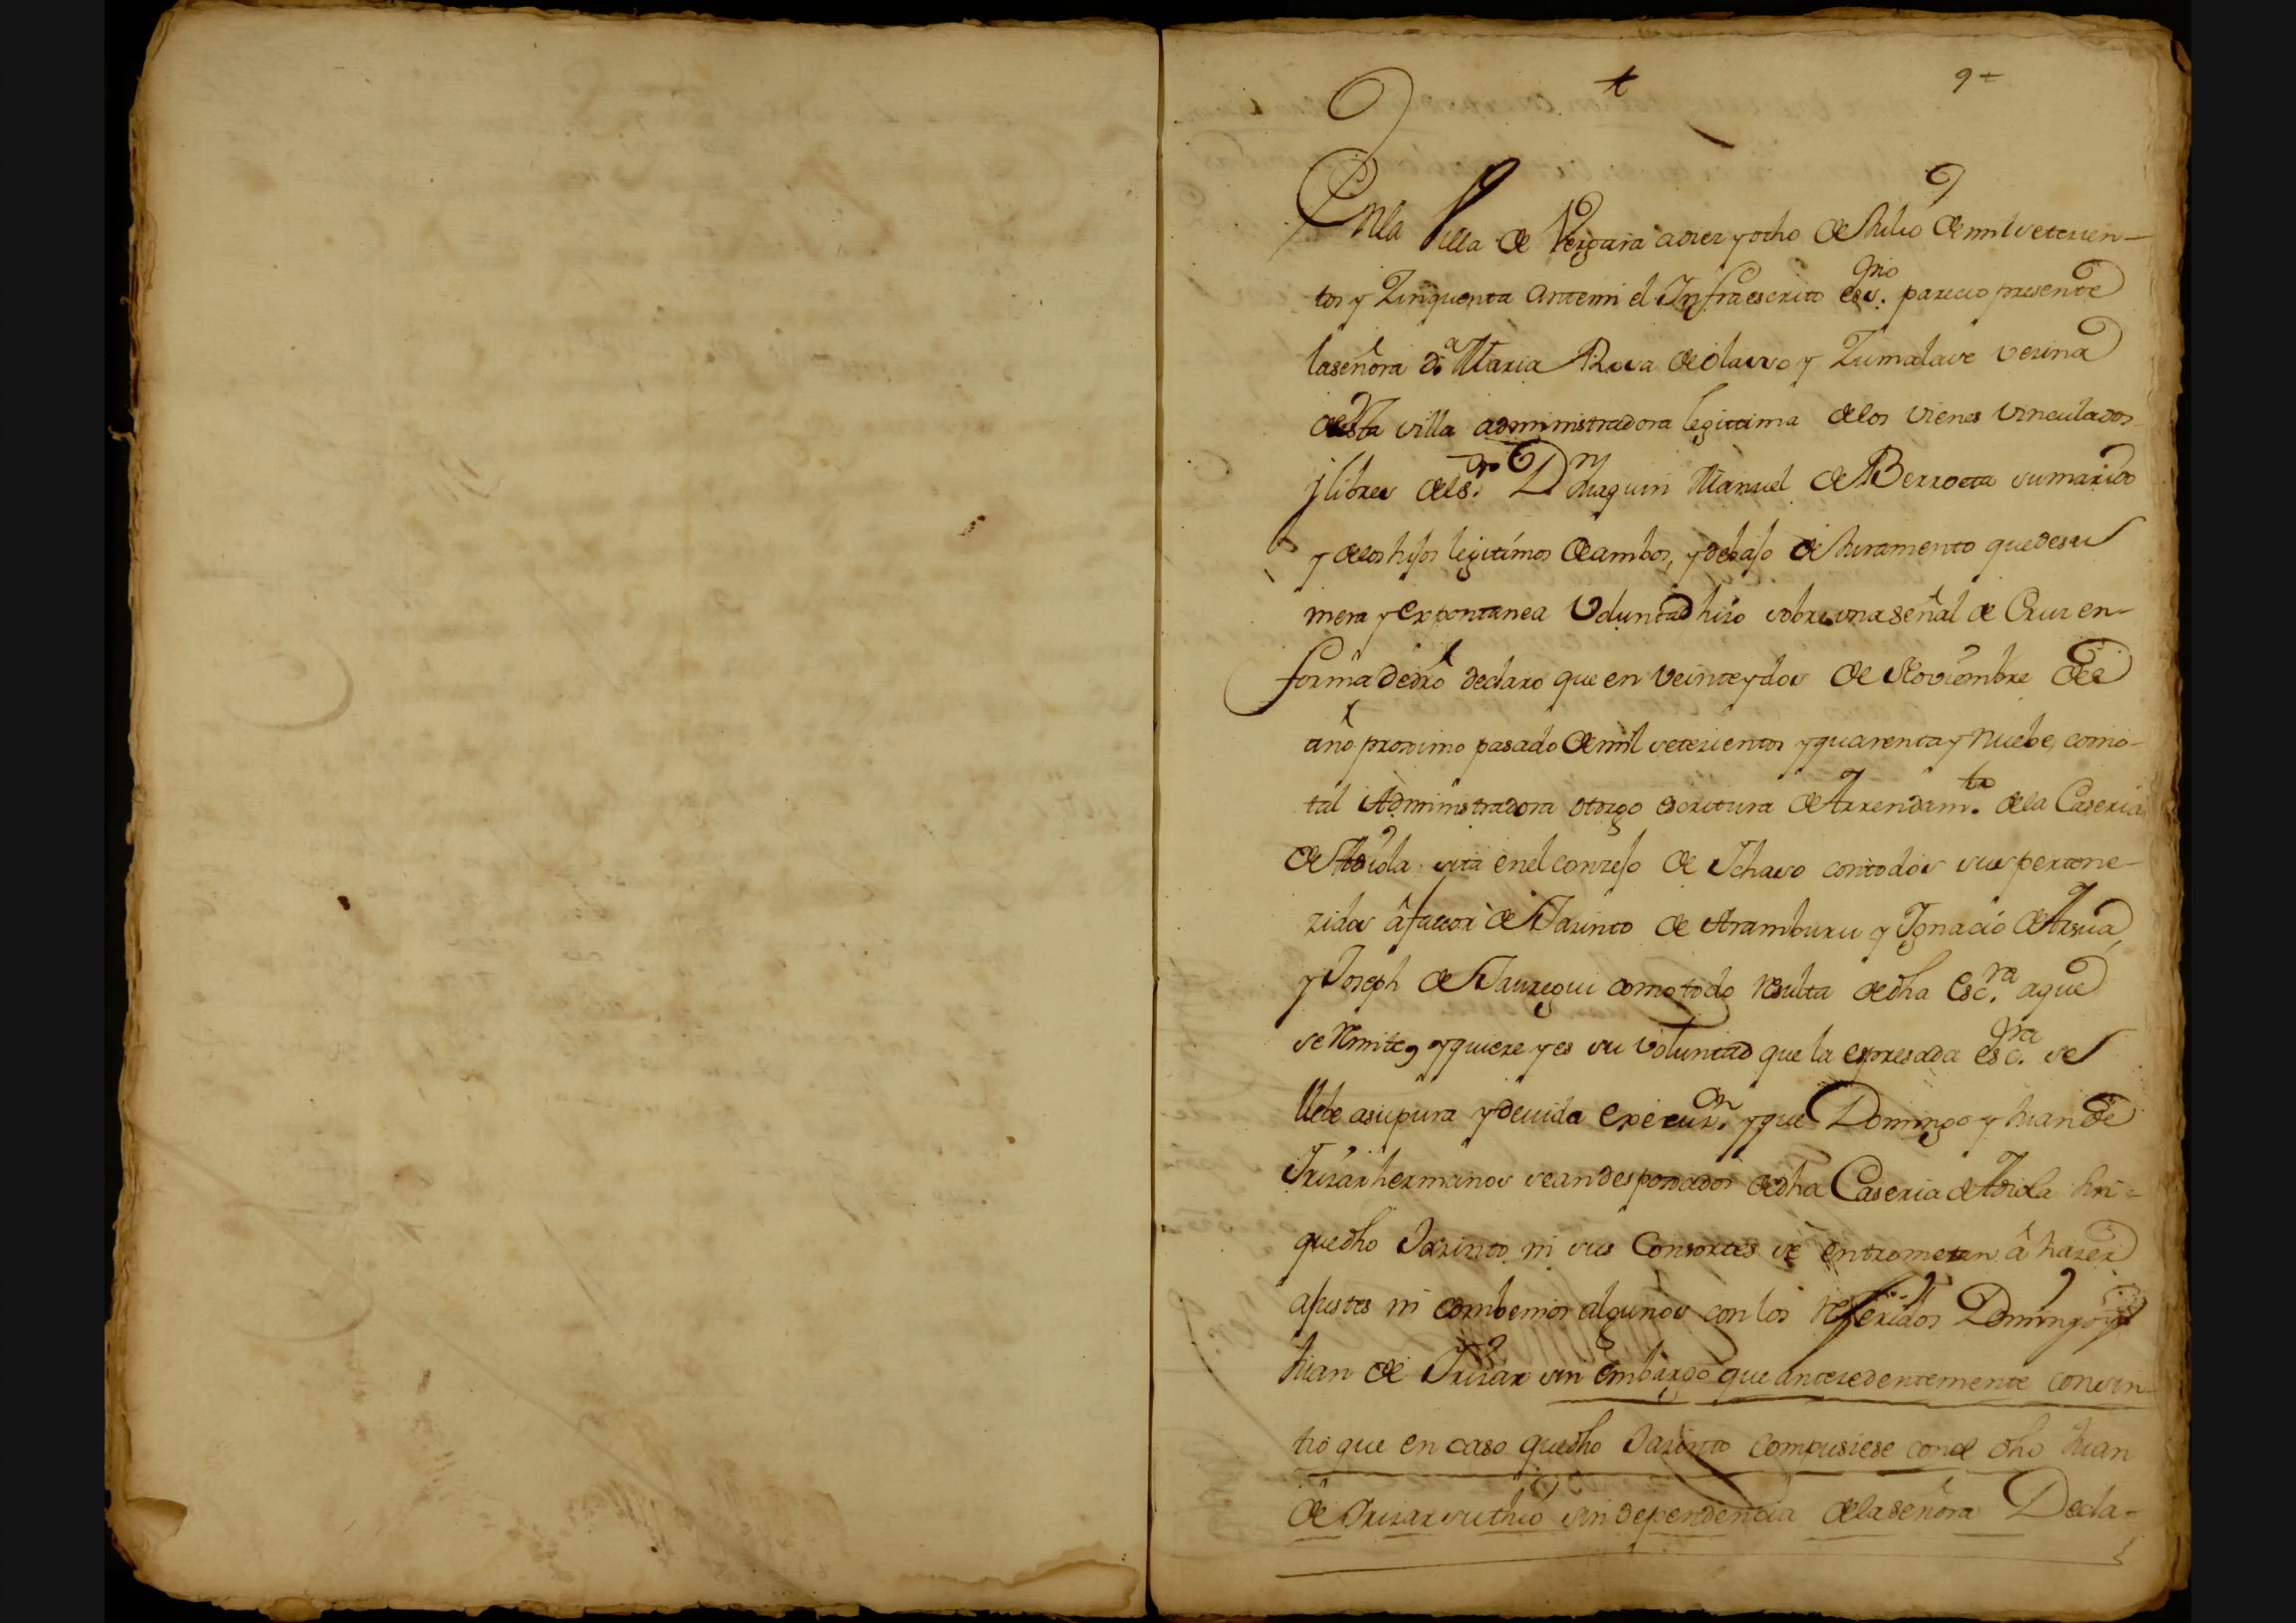 9
En la Villa de Vergara a diez y ocho de Julio de mil setezien-
tos y Zinquenta ante mi el Infraescrito ess.no parecio presente
la señora D.a Maria Rosa de olasso y Zumalave vezina
de esta villa administradora legittima de los vienes vinculados
y libres del s.or Dn Juaquin Manuel de Berroeta su marido
y de los hijos legitimos de ambos, y debajo de Juramento que de su
mera y expontanea Voluntad hizo sobre una señal de Cruz en
forma de dro declaro que en veinte y dos de Noviembre de el
año proximo pasado de mil setezientos y quarenta y nuebe, como
tal Administradora otorgo escritura de Arrendam.to de la Caseria
de sita en el conzejo de Ichaso con todos sus pertene-
zidos â favor de Jazinto de Aramburu y Ignacio de Arsua,
y Joseph de Jauregui como todo resulta de dha Esc.ra a que
se Remite, y quiere y es su voluntad que la expresada esc.ra se
llebe a su pura y devida execuz.on y que Domingo y Juan de
Irizar hermanos sean desposados de dha Caseria de sin
que dho Jazinto ni sus Consortes se entrometan â hazer
ajustes ni combenios algunos con los referidos Domingo y
Juan de Irizar sin embargo que antezedentemente consin-
tio que en caso que dho Jazinto compusiese con el dho Juan
de Irizar su thio sin dependencia de la señora Decla-